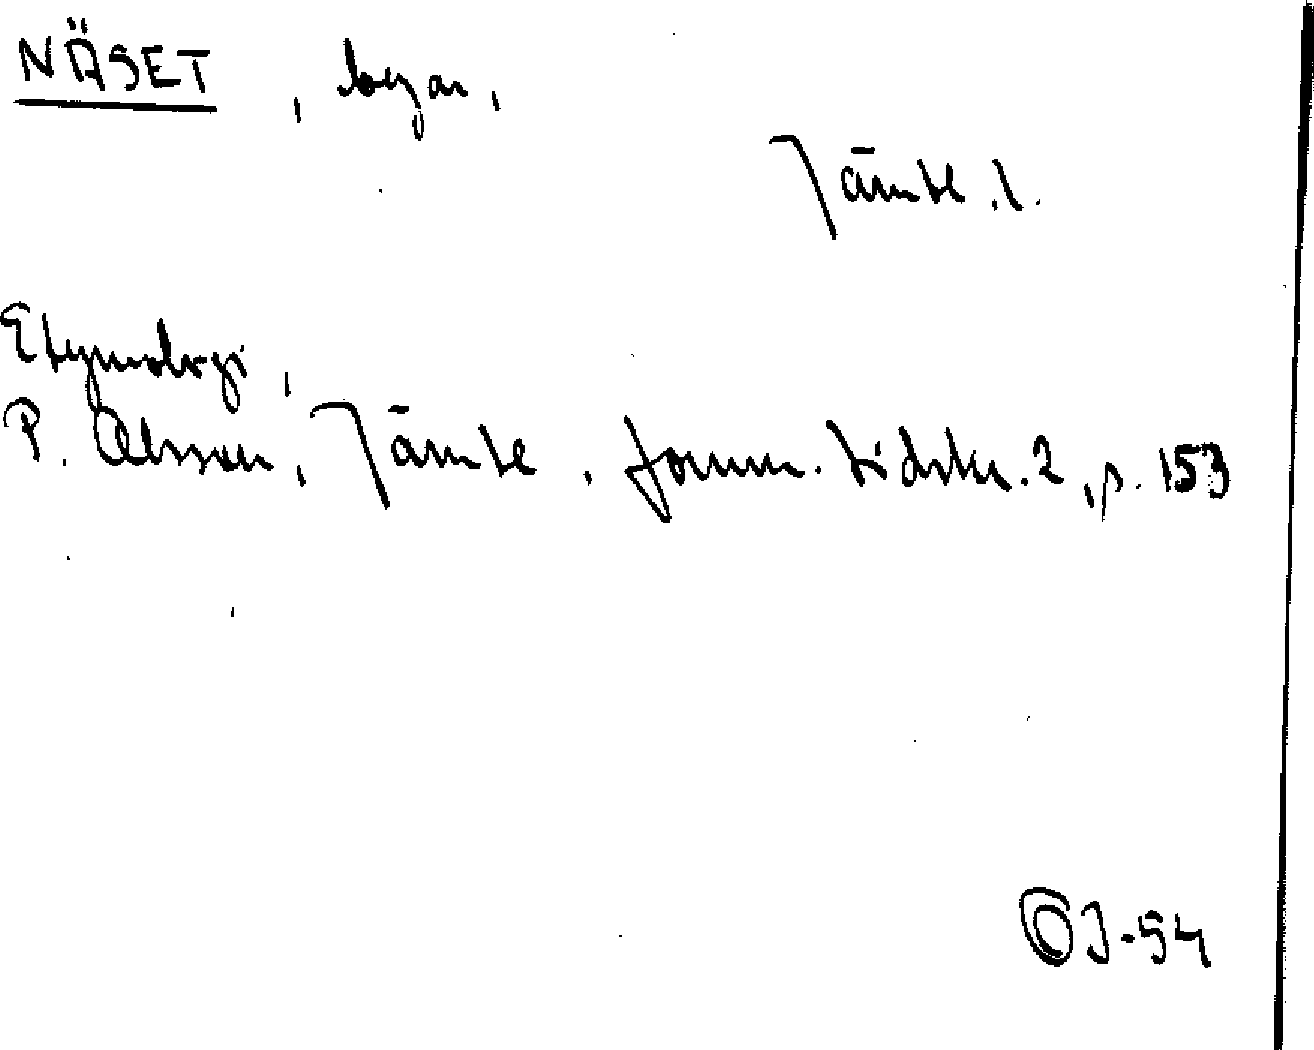 NÄSET, byar,
Jämtl. l.
Etymologi,
P. Olsson, Jämtl. fornm. tidskr. 2, p. 153
OJ-54